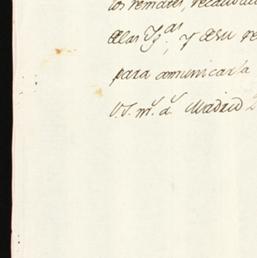 los remates, recaudac
de las Yg.as, y de su re
para comunicarla
V.S. m.s a.s Madrid 2